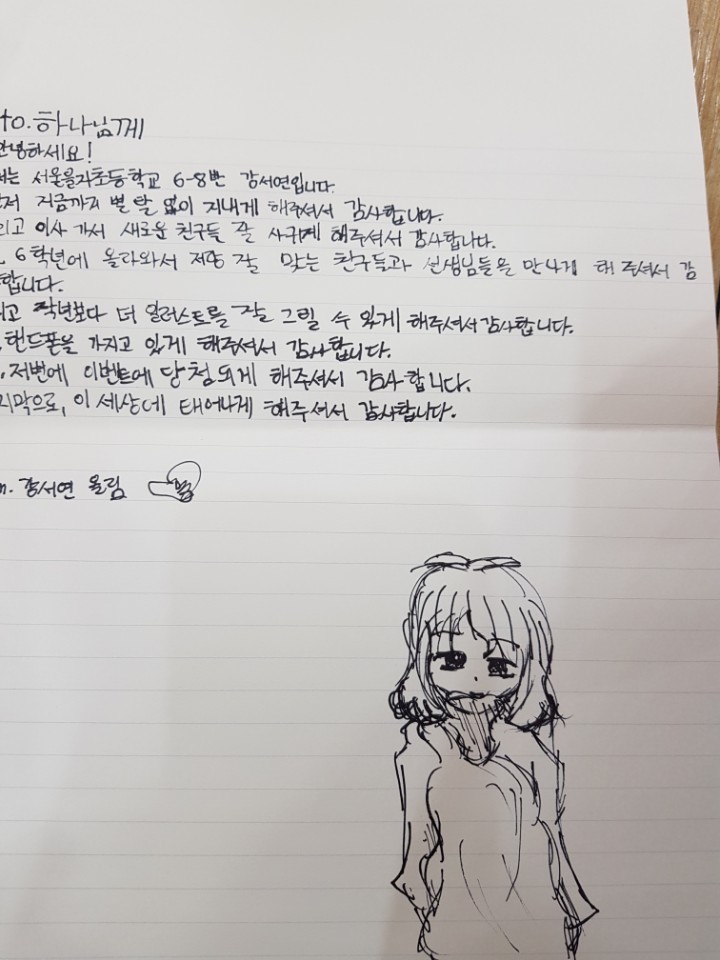 to. 하나님께
안녕하세요!
저는 서울을지초등학교 6-8반 강서연입니다.
먼저 지금까지 별 탈 없이 지내게 해주셔서 감사합니다.
그리고 이사 가서 새로운 친구들 잘 사귀게 해주셔서 감사합니다.
6학년에 올라와서 저랑 잘 맞는 친구들과 선생님들을 만나게 해 주셔서 감
합니다.
작년보다 더 일러스트를 잘 그릴 수 있게 해주셔서 감사합니다.
핸드폰을 가지고 있게 해주셔서 감사합니다.
저번에 이벤트에 당첨되게 해주셔서 감사합니다.
지막으로, 이 세상에 태어나게 해주셔서 감사합니다.
강서연 올림